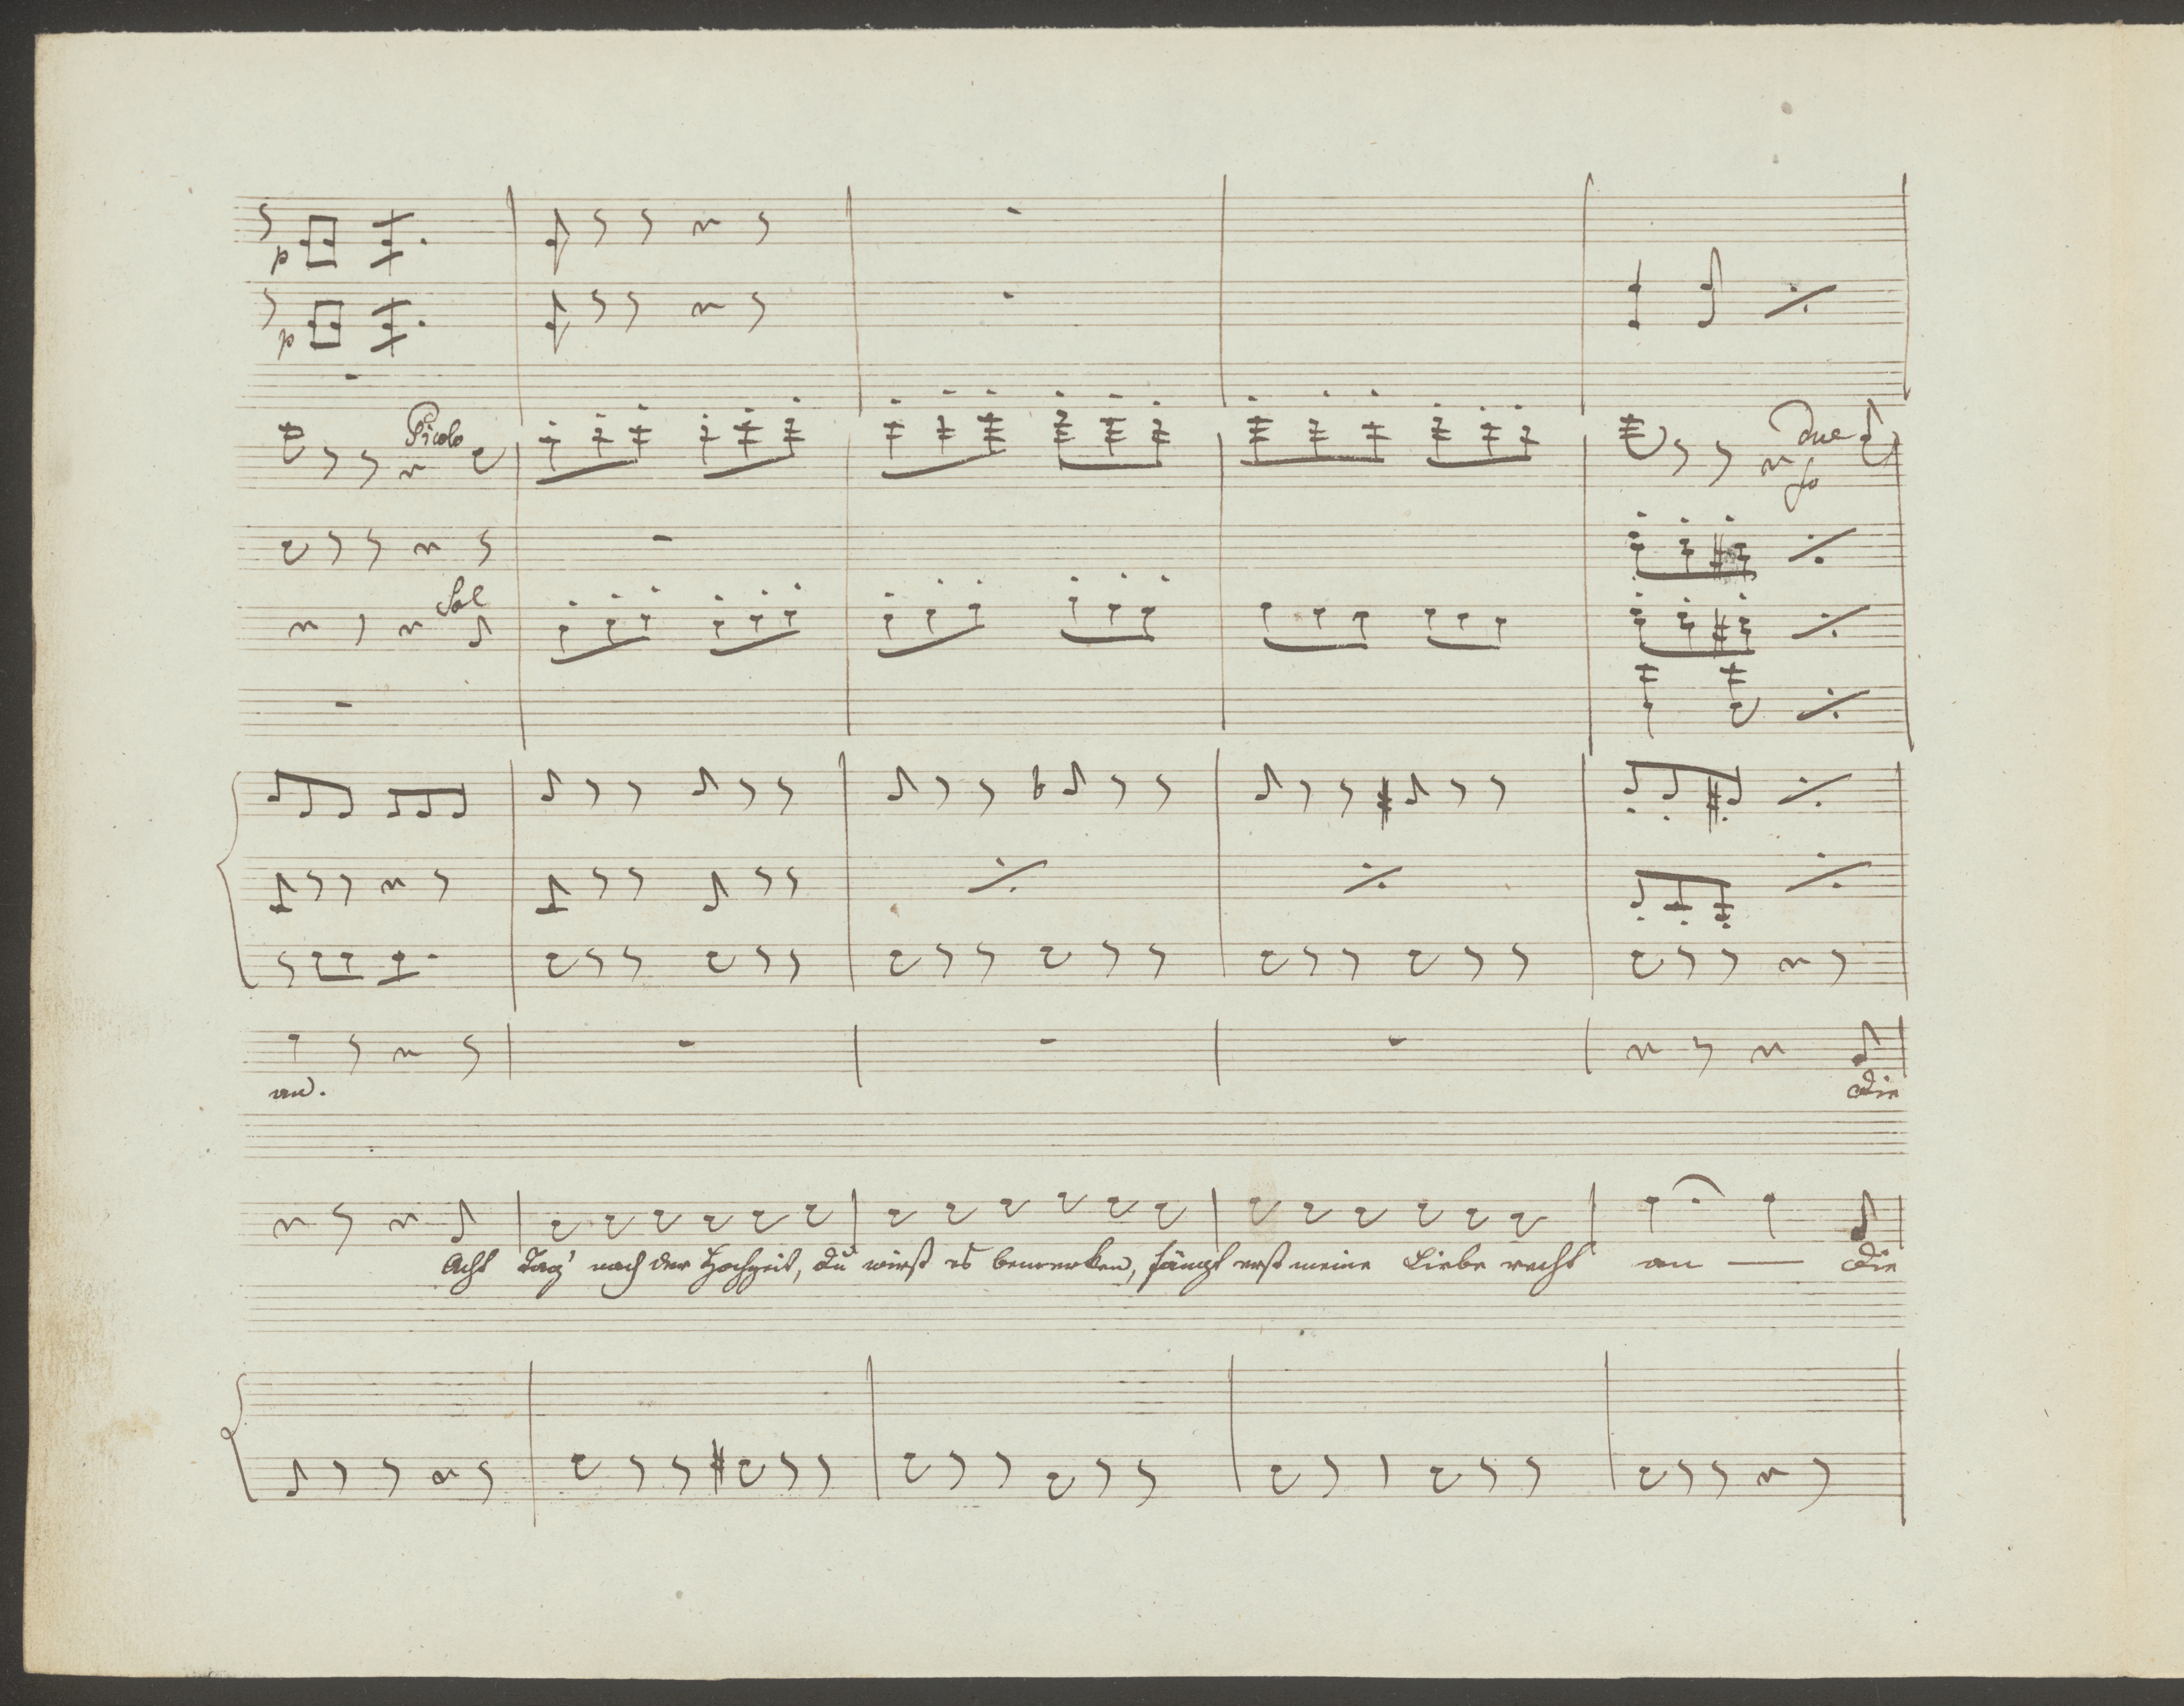 p
p
Picolo
due
fo
Sol
an.
Die
Acht Tag' nach der Hochzeit, du wirst es bemerken, fängt erst meine Liebe recht an — Die